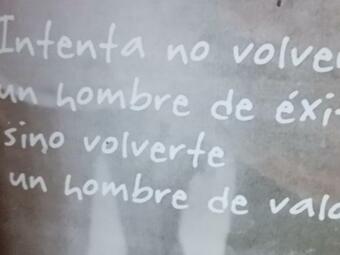 Intenta no volver
un hombre de éxi
sino volverte
un hombre de valo